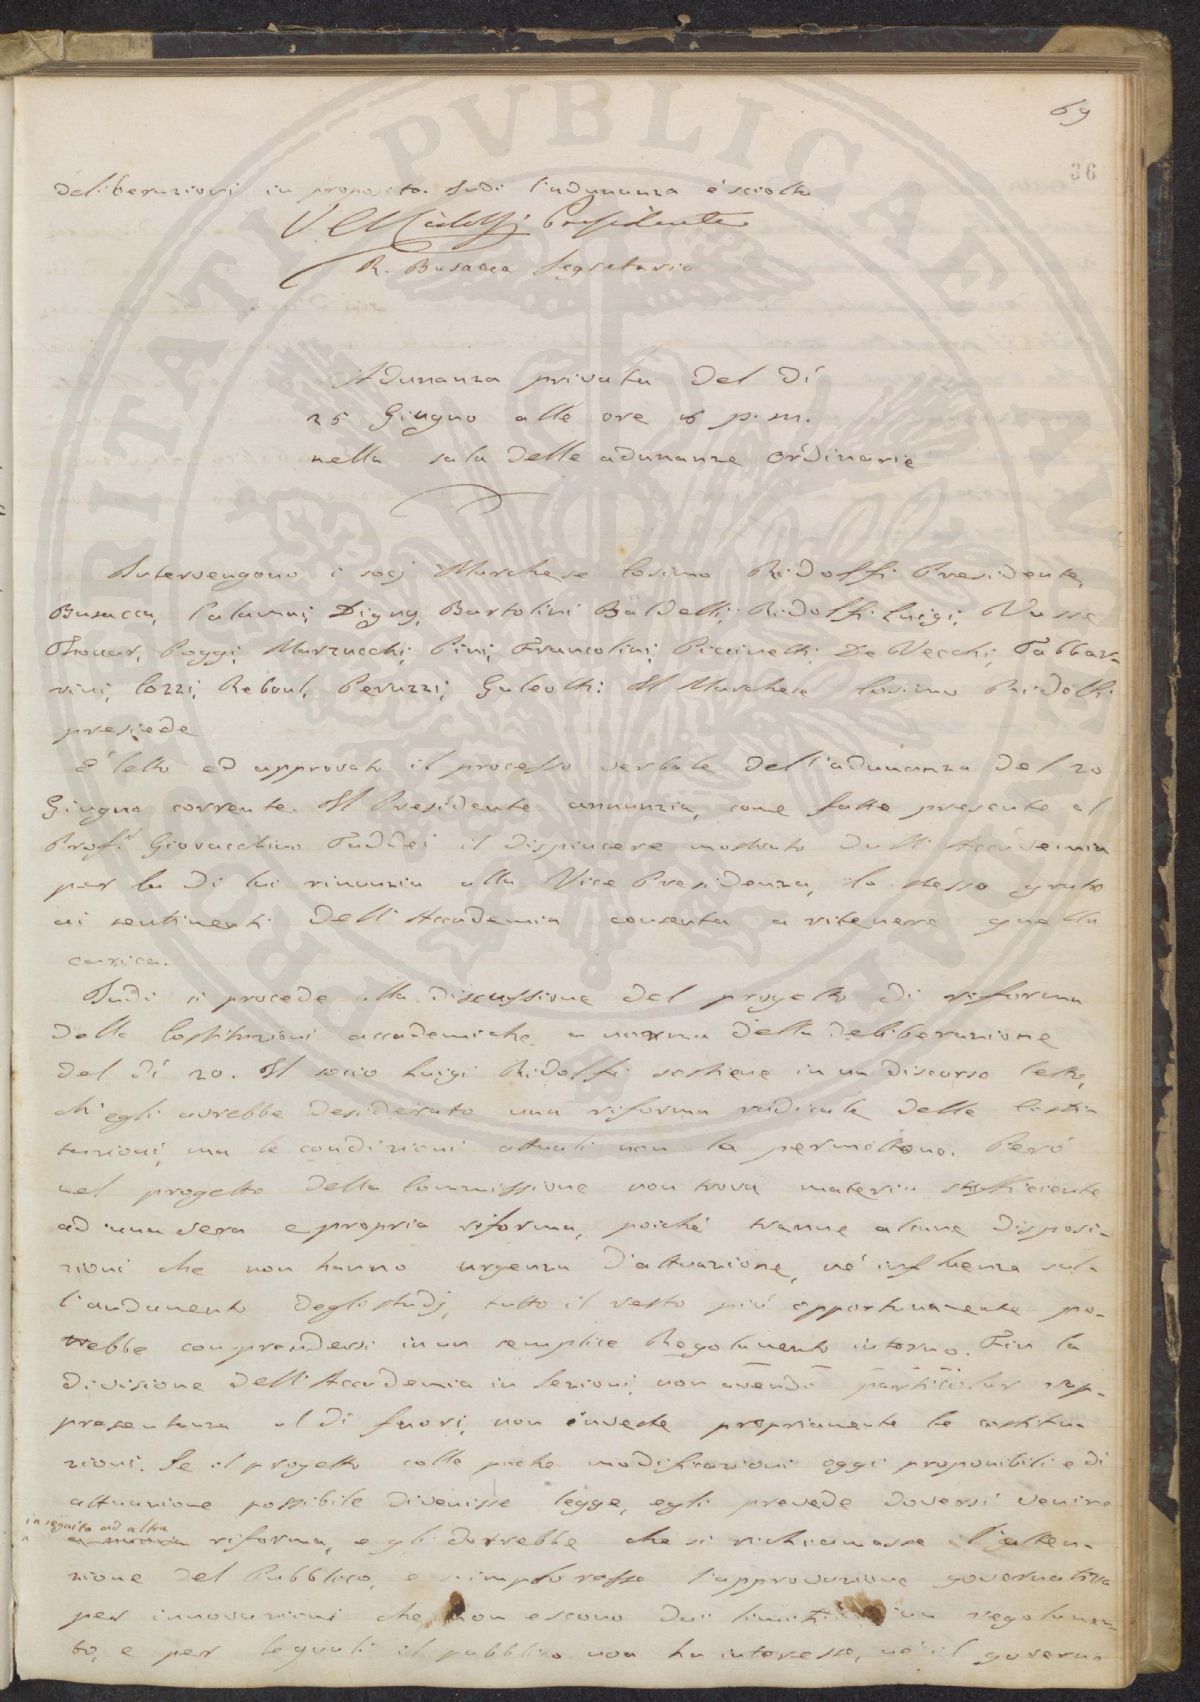 69
36
deliberazioni in proposito. Indi l'adunanza è sciolta
Presidente
R. Busacca Segretario
Adunanza privata del dí
25 Giugno alle ore 6 p.m.
nella sala delle adunanze ordinarie
Intervengono i socj Marchese Cosimo Ridolfi Presidente,
Busacca, Calamai, Digny, Bartolini Baldelli, Ridolfi Luigi,
Thouar, Poggi, Marzucchi, Pini, Francolini, Piccinetti, De Vecchi, Tabbar-
rini, Cozzi, Reboul, Peruzzi, Galeotti. Il Marchese Cosimo Ridolfi
presiede
È letto ed approvato il processo verbale dell'adunanza del 20
Giugno corrente. Il Presidente annunzia, come fatto presente al
Prof. Giovacchino Taddei il dispiacere mostrato dall'Accademia
per la di lui rinunzia alla Vice Presidenza, lo stesso grato
ai sentimenti dell'Accademia consenta a ritenere quella
carica.
Indi si procede alla discussione del progetto di riforma
delle Costituzioni accademiche a norma della deliberazione
del dí 20. Il socio Luigi Ridolfi sostiene in un discorso letto,
ch'egli avrebbe desiderato una riforma radicale delle Costi-
tuzioni, ma le condizioni attuali non la permettono. Però
nel progetto della Commissione non trova materia sufficiente
ad una vera e propria riforma, poiché tranne alcune disposi-
zioni che non hanno urgenza d'attuazione, né influenza sul-
l'andamento degli studj, tutto il resto piú opportunamente po-
trebbe comprendersi in un semplice Regolamento interno. Fin la
divisione dell'Accademia in Sezioni, non avendo particolar rap-
presentanza al di fuori, non investe propriamente le costitu-
zioni. Se il progetto colle poche modificazioni oggi proponibili e di
attuazione possibile divenisse legge, egli prevede doversi venire
in seguito ad altra
riforma, e gli dorrebbe che si richiamasse l'atten-
zione del Pubblico, e s'implorasse l'approvazione governativa
per innovazioni che non escono dai limiti di un regolamen-
to, e per le quali il pubblico non ha interesse, né il governo